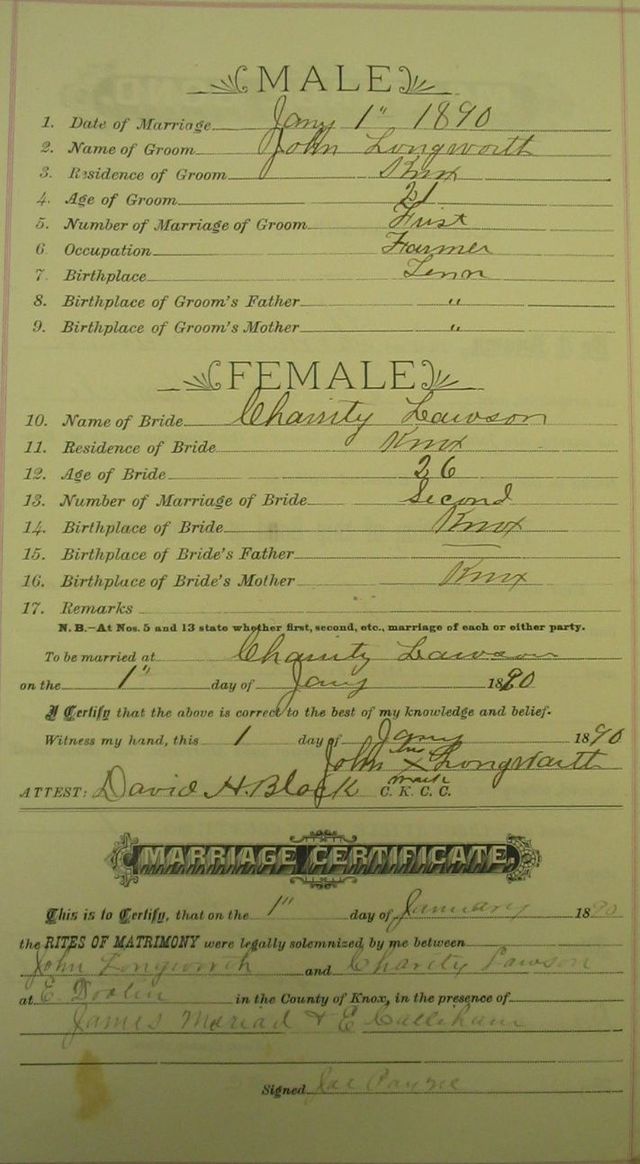 MALE
1. Date of Marriage Jany 1" 1890
2. Name of Groom John Longworth
3. Residence of Groom Knox
4. Age of Groom 21
5. Number of Marriage of Groom First
6 Occupation Farmer
7. Birthplace Tenn
8. Birthplace of Groom's Father "
9. Birthplace of Groom's Mother "
FEMALE
10. Name of Bride Charity Lawson
11. Residence of Bride Knox
12. Age of Bride 26
13. Number of Marriage of Bride Second
14. Birthplace of Bride Knox
15. Birthplace of Bride's Father —
16. Birthplace of Bride's Mother Knox
17. Remarks
N. B.—At Nos. 5 and 13 state whether first, second, etc., marriage of each or either party.
To be married at Charity Lawson
on the 1" day of Jany 1890
I Certify that the above is correct to the best of my knowledge and belief.
Witness my hand, this 1 day of Jany 1890
John his X mark Longwarth
ATTEST: David H. Black C. K. C. C.
MARRIAGE CERTIFICATE.
This is to Certify, that on the 1" day of January 1890
the RITES OF MATRIMONY were legally solemnized by me between
John Longworth and Charity Lawson
at E. in the County of Knox, in the presence of
James & E
Signed Joe Payne